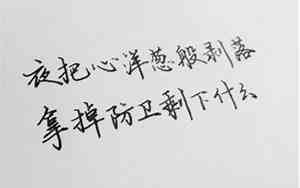 夜把心洋葱般剥落
拿掉防卫剩下什么